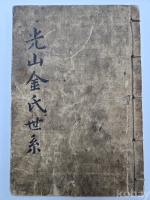 光山金氏世系